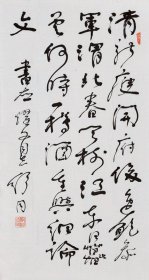 清新庾開府俊逸鮑參
軍渭北春天樹江東日暮
雲何時一樽酒重與細論
文 書 舒同